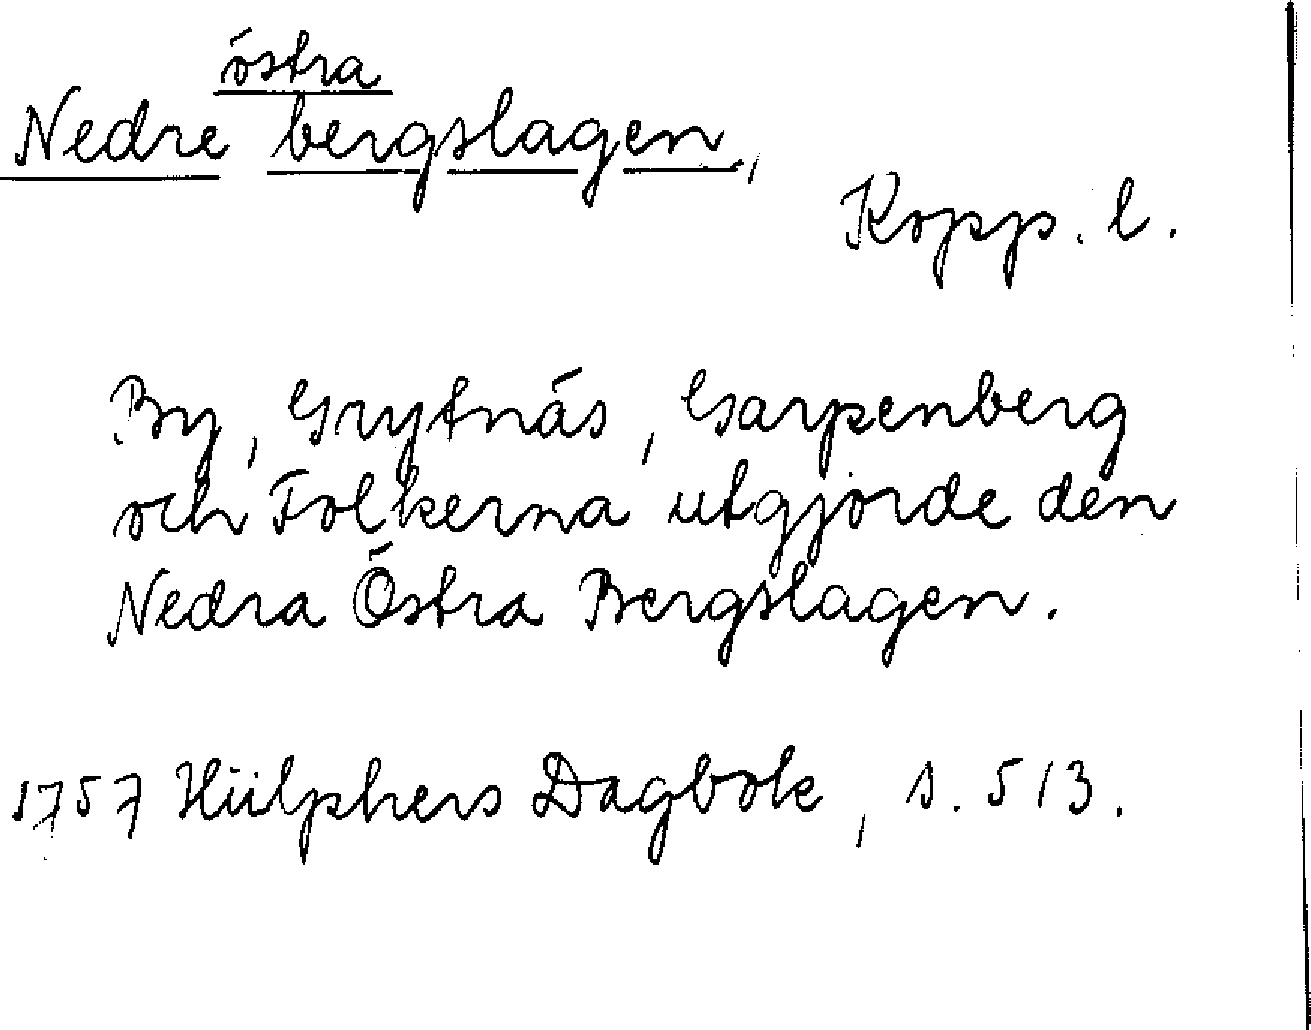 östra
Nedre bergslagen,
Kopp. l.
By, Grytnäs, Garpenberg
och Folkerna utgjorde den
Nedra Östra Bergslagen.
1757 Hülphers Dagbok, s. 513.